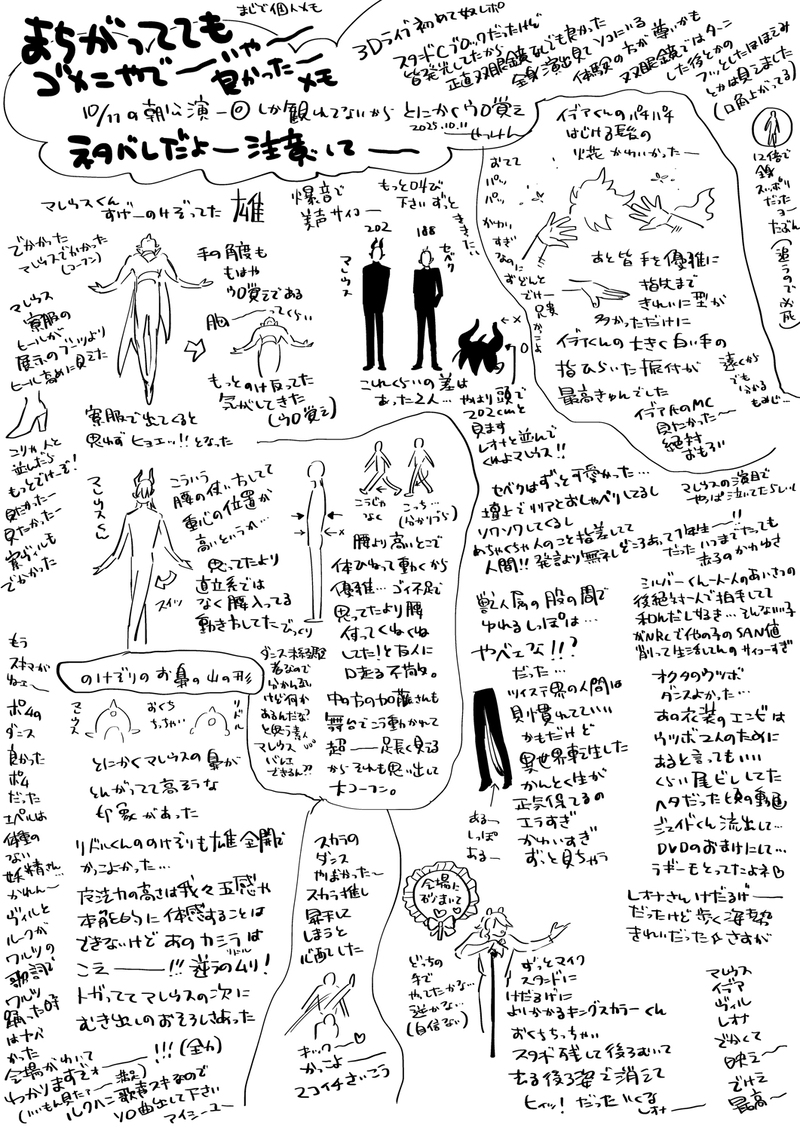 まじで個人メモ
まちがってても
ゴメンやで──いや〜
良かった〜メモ
10/11の朝公演一回しか観れてないからとにかくウロ覚え
2025.10.11
ネタバレだよー注意して──
3Dライブ初めて奴レポ
スタンドCブロックだったけど
皆発光してたから
正直双眼鏡なしでも良かった
全身演出見てソコにいる
体験の方が尊いかも
双眼鏡ではターン
した後とかの
フッとしたほほえみ
とかは見えました
(口角上がってる)
12倍で
全身
スッポリ
だった
ョー
たぶん
(追うので必死)
イデアくんのパチパチ
はじける髪の
火花かわいかったー
おてて
パッ
パッ
かわい
すぎ
なのに
ずどんと
でけー
兄貴
かっこよ
あと皆手を優雅に
指先まで
きれいに型が
多かっただけに
イデアくんの大きく白い手の
指ひらいた振付が
最高きゅんでした
遠くから
でも
分かる
もみじ…
イデア氏のMC
見たかった〜
絶対
おもろい
マレウスくん
すげーのけぞってた
雄
爆音で
美声サイコー
もっと叫んで
下さいずっと
ききたい
でかかった
マレウスでかかった
(コーフン)
手の角度も
もはや
ウロ覚えである
胸──ってくらい
もっとのけ反ってた
気がしてきた
(ウロ覚え)
マレウス
寮服の
ヒールが
展示のブーツより
ヒール高めに見えた
寮服で出てくると
思わずヒョエッ!!となった
202
188
マレウス
セベク
これくらいの差は
あった2人…
やはり頭で
202cmと
見ます
レオナと並んで
くれよマレウス!!
ユリカ人と
並んだら
もっとでけーぞ!
見たかったー
見たかったー
寮ヴィルも
でかかった
マレウスくん
こういう
腰の使い方してて
重心の位置が
高いというか…
思ってたより
直立系では
なく腰入ってる
動き方しててびっくり
スイッ
こうじゃ
なく
こっち…
(分かりづら)
腰より高いとこで
体ひねって動くから
優雅…ゴイ不足で
思ってたより腰
付ってくねくね
してた!と友人に
口走る不敬。
中の方の加藤さんも
舞台でこう動かれて
超──足長く見える
からそれも思い出して
大コーフン。
ダンス未経験
者なので
分かんない
けど何か
あるんだな?
と思う素人
マレウス
バレエ
できるん??
セベクはずっと可愛かった…
壇上でリリアとおしゃべりしてるし
ソワソワしてくるし
めちゃくちゃ人のこと指差してて
人間!!発言より無礼どころあって1年生〜!!
だった
マレウスの演目で
やっぱ泣いてたらしい
いつまでたっても
赤子のかわゆさ
獣人属の股の間で
ゆれるしっぽは…
やべェな!!?
だった…
ツイステ界の人間は
見慣れてていい
かもだけど
異世界転生した
かんとく生が
正気保てるの
エラすぎ
かわいすぎ
ずっと見ちゃう
あるー
しっぽ
あるー
シルバーくん一人一人のあいさつの
後絶対一人で拍手してて
和んだしなるき…そんないい子
がNRCで他の子のSAN値
削って生活してんのサイコーすぎ
オクタのウツボ
ダンスよかった…
あの衣装のエンビは
ウツボ2人のために
あると言ってもいい
くらい尾ビレしてた
ヘタだった頃の動画
ジェイドくん流出して…
DVDのおまけにして…
ラギーもとってたよネ
レオナさんけだるげ──
だったけど歩く姿勢
きれいだった☆さすが
のけぞりのお鼻の山の形
マレウス
おくち
ちっちゃい
リドル
とにかくマレウスの鼻が
とんがってて高そうな
印象があった
リドルくんののけぞりも雄全開で
かっこよかった…
魔法力の高さは我々五感や
本能的に体感することは
できないけどあのカミラは
リドル
こえ───!!!逆らうのムリ!
トガっててマレウスの次に
むき出しのおそろしさあった
もう
スキマが
ねェー
ポムの
ダンス
良かった
ポム
だった
エペルは
体重の
ない
妖精さん…
かれんー
ヴィルと
ルークが
ワルツの
歌詞で
ワルツ
踊った時
はヤバ
かった
会場がわいて──!!!(全力)
わかりますずォ──(満足)
(いいもん見た〜)
ルクハン歌声スキなので
ソロ曲出して下さい
マイシーユー
スカラの
ダンス
やばかった〜
スカラ推し
昇天して
しまうと
心配した
キッ〜♡
かっこよ──
スコイチさいこう
会場に
おりまいて
どっちの
手で
やってたかな…
逆かな…
(自信ない)
ずっとマイク
スタンドに
けだるげに
よりかかるキングスカラーくん
おくちちっちゃい
スタンド残して後ろむいて
去る後ろ姿で消えて
ヒィッ!だったいくな
レオナ──
マレウス
イデア
ヴィル
レオナ
でかくて
映え〜
でけェ
最高〜